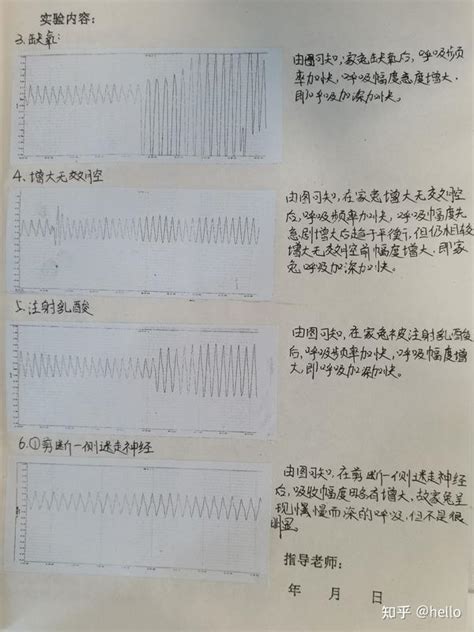 实验内容：
3.缺氧：
由图可知，家兔缺氧后，呼吸频
率加快，呼吸幅度急度增大，
即呼吸加深加快。
4.增大无效腔
由图可知，在家兔增大无效腔
后，呼吸频率加快，呼吸幅度先
急剧增大后趋于平衡，但仍相较
增大无效腔前幅度增大，即家
兔呼吸加深加快。
5.注射乳酸
由图可知，在家兔被注射乳酸
后，呼吸频率加快，呼吸幅度增
大，即呼吸加深加快。
6.①剪断一侧迷走神经
由图可知，在剪断一侧迷走神经
后，吸收幅度略有增大，故家兔呈
现慢慢而深的呼吸，但不是很
明显。
指导老师：
年 月 日
知乎 @hello